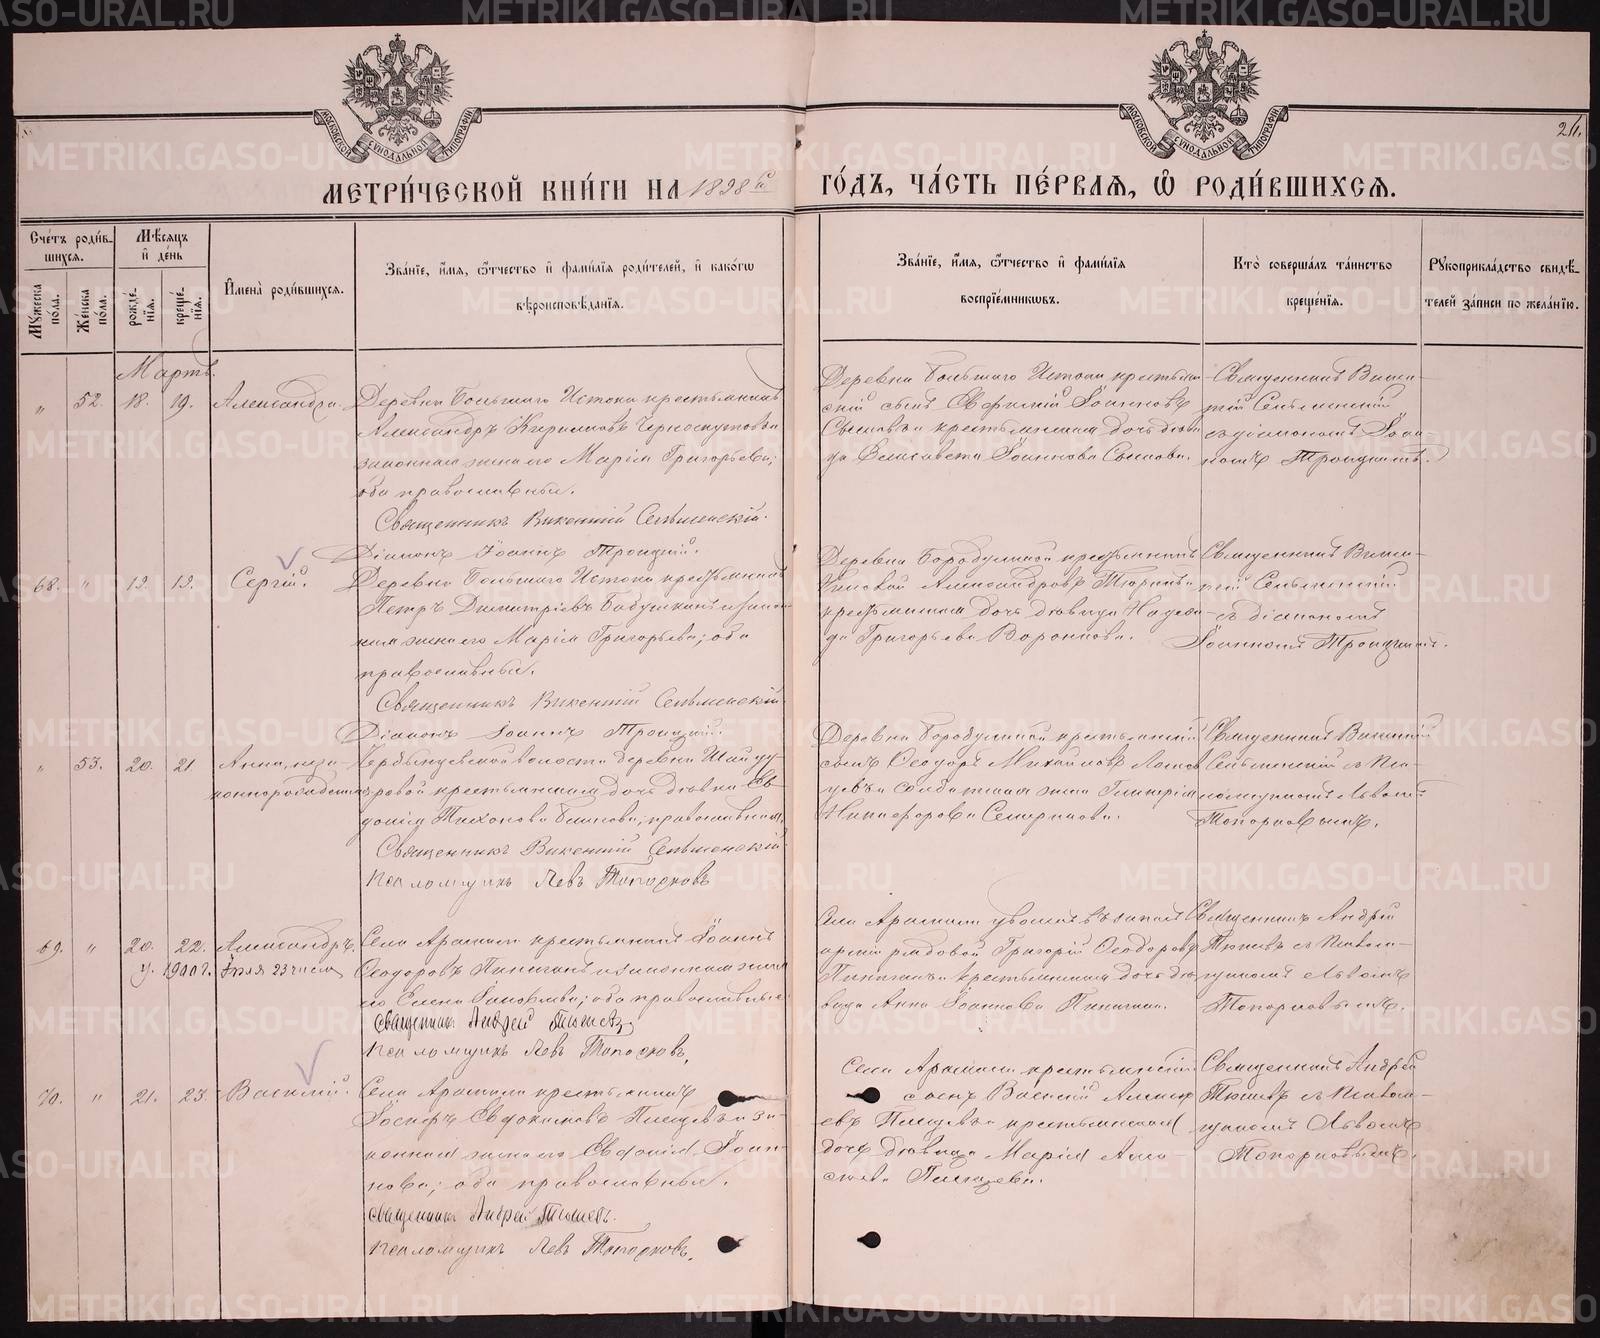 21.
МЕТРИ́ЧЕСКОЙ КНИ́ГИ НА 1898 й
ГО́ДЪ, ЧА́СТЬ ПЕ́РВАѦ, Ѿ РОДИ́ВШИХСѦ.
МОСКОВСКОЙ СѴНОДАЛЬНОЙ ТИПОГРАФІИ
МОСКОВСКОЙ СѴНОДАЛЬНОЙ ТИПОГРАФІИ
Сче́тъ роди́в-
шихсѧ.
Мꙋ́жеска по́ла.
Же́нска по́ла.
Мѣ́сѧцъ
и҆ де́нь
рожде́-
нїѧ.
креще́-
нїѧ.
И҆мена̀ роди́вшихсѧ.
Зва́нїе, и҆́мѧ, ѻ҆́тчество и҆ фами́лїѧ роди́телей, и҆ како́гѡ
вѣроисповѣ́данїѧ.
Зва́нїе, и҆́мѧ, ѻ҆́тчество и҆ фами́лїѧ
воспрїе́мниковъ.
Кто̀ соверша́лъ та́инство
креще́нїѧ.
Рꙋкоприкла́дство свидѣ́-
телей за́писи по жела́нїю.
Мартъ.
" 52. 18. 19. Александра.
Деревни Большаго Истока крестьянинъ
Александръ Кириловъ Черноскутовъ и
законная жена его Марія Григорьева;
оба православные.
Священникъ Викентій Сельменскій.
Діаконъ Іоаннъ Троицкій.
Деревни Большаго Истока крестьян-
скій сынъ Евфимій Іоанновъ
Сысковъ и крестьянская дочь дѣви-
ца Елисавета Іоаннова Сыскова.
Священникъ Викен-
тій Сельменскій
съ діакономъ Іоан-
номъ Троицкимъ.
68. " 12. 12. Сергій.
Деревни Большаго Истока крестьянинъ
Петръ Димитріевъ Бабушкинъ и закон-
ная жена его Марія Григорьева; оба
православные.
Священникъ Викентій Сельменскій
Діаконъ Іоаннъ Троицкій.
Деревни Бородулиной крестьянинъ
Александровъ Тюринъ и
крестьянская дочь дѣвица Надеж-
да Григорьева Воронцова.
Священникъ Викен-
тій Сельменскій
съ діакономъ
Іоанномъ Троицкимъ.
" 53. 20. 21. Анна, неза-
коннорожденная
волости деревни Шайду-
ровой крестьянская дочь дѣвка Ев-
докія Тихонова Блинова; православная.
Священникъ Викентій Сельменскій
Псаломщикъ Левъ Топорковъ
Деревни Бородулиной крестьянскій
сынъ Ѳеодоръ Михайловъ
и солдатская жена Гликерія
Никифорова Северикова.
Священникъ Викентій
Сельменскій съ пса-
ломщикомъ Львомъ
Топорковымъ.
69. " 20. 22. Александръ.
у. 1900 г. Іюля 23 числа
Села Арамили крестьянинъ Іоаннъ
Ѳеодоровъ Пинигинъ и законная жена
его Елена Іаковлева; оба православные.
Священникъ Андрей Тюшевъ
Псаломщикъ Левъ Топорковъ.
Села Арамили уволенъ въ запасъ
арміи рядовой Григорій Ѳеодоровъ
Пинигинъ и крестьянская дочь дѣ-
вица Анна Іоаннова Пинигина.
Священникъ Андрей
Тюшевъ съ псалом-
щикомъ Львомъ
Топорковымъ.
70. " 21. 23. Василій.
Села Арамили крестьянинъ
Іосифъ Евдокимовъ Плещевъ и за-
конная жена его Евфимія Іоан-
нова; оба православные.
Священникъ Андрей Тюшевъ.
Псаломщикъ Левъ Топорковъ.
Села Арамили крестьянскій
сынъ Василій Алексѣ-
евъ Плещевъ и крестьянская
дочь дѣвица Марія Алек-
сѣева Плещева.
Священникъ Андрей
Тюшевъ съ псалом-
щикомъ Львомъ
Топорковымъ.
METRIKI.GASO-URAL.RU